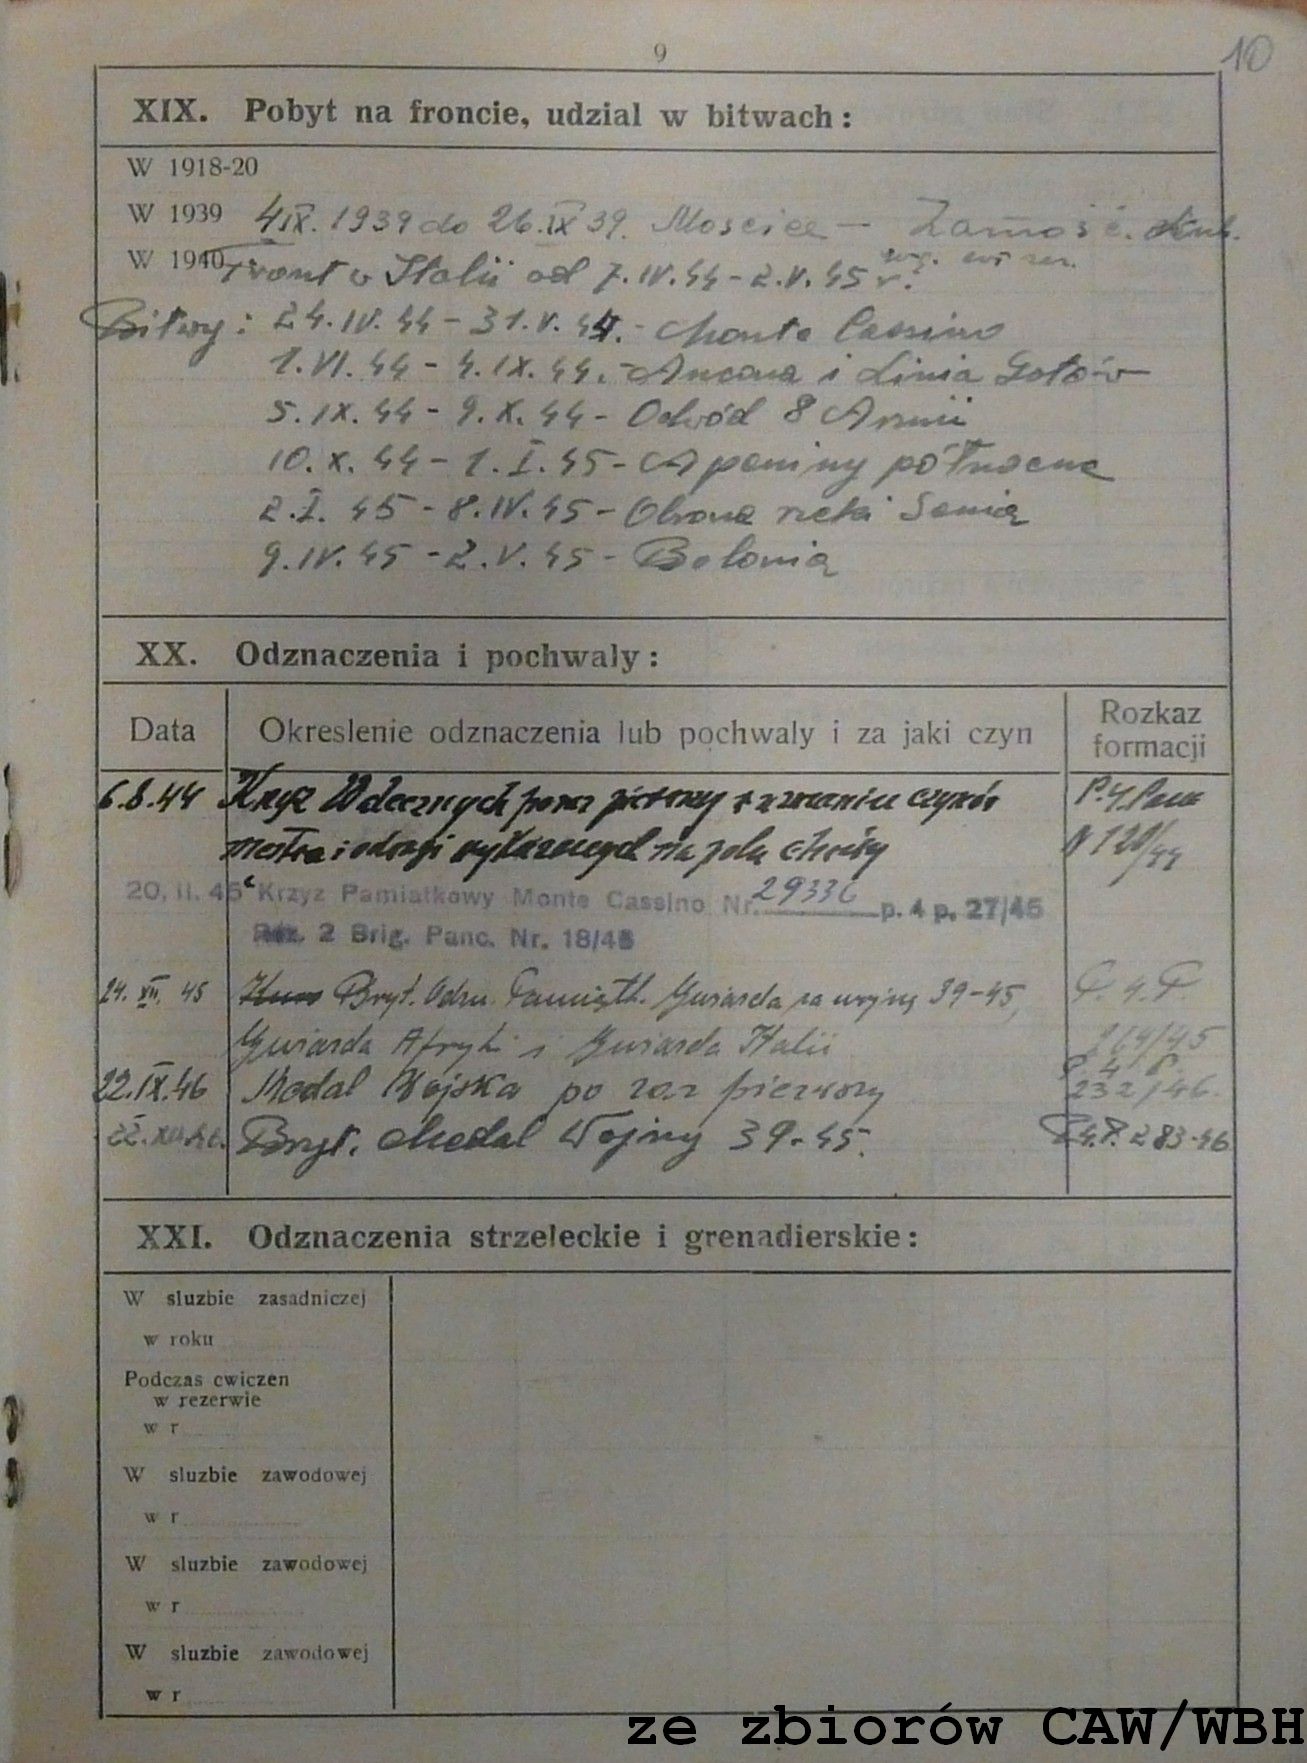 9
10
XIX. Pobyt na froncie, udzial w bitwach:
W 1918-20
W 1939 4 IX. 1939 do 26.IX 39. Moscice - Zamość.
W 1940 Front w Italii od 7.IV.44 - 2.V.45 r.
Bitwy: 24.IV.44 - 31.V.44. - Monte Cassino
1.VI.44 - 4.IX.44. - Ancona i Linia Gotów
5.IX.44 - 9.X.44 - Odwód 8 Armii
10.X.44 - 1.I.45 - Apeniny północne
2.I.45 - 8.IV.45 - Obrona rzeki Senio
9.IV.45 - 2.V.45 - Bolonia
XX. Odznaczenia i pochwaly:
Data Okreslenie odznaczenia lub pochwaly i za jaki czyn Rozkaz formacji
6.8.44 Krzyż Walecznych poraz pierwszy czynów P.4 Panc
męstwa i odwagi wykazanych na polu chwały N 120/44
20. II. 45 Krzyz Pamiatkowy Monte Cassino Nr. 29336 p. 4 p. 27/45
Roz. 2 Brig. Panc. Nr. 18/45
24. XII. 45 Bryt. Odzn. Pamiątk. Gwiazda za wojnę 39-45, P. 4. P.
Gwiazda Afryki i Gwiazda Italii 264/45
22.IX.46 Medal Wojska po raz pierwszy P. 4 P. 232/46.
22.XII.46. Bryt. Medal Wojny 39-45. P.4.P. 283-46
XXI. Odznaczenia strzeleckie i grenadierskie:
W sluzbie zasadniczej
w roku
Podczas cwiczen
w rezerwie
w r
W sluzbie zawodowej
w r
W sluzbie zawodowej
w r
W sluzbie zawodowej
w r
ze zbiorów CAW/WBH